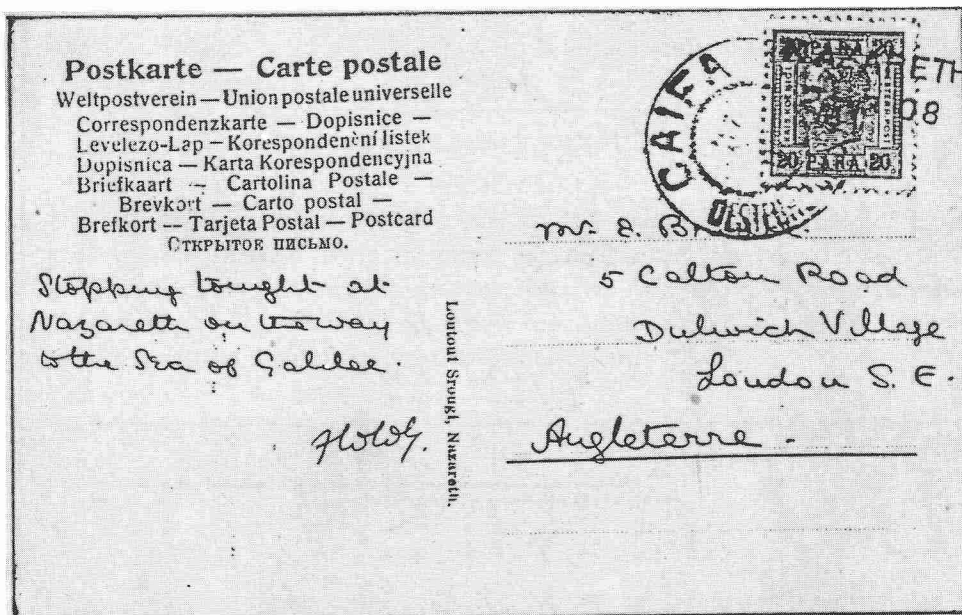 Postkarte — Carte postale
Weltpostverein — Union postale universelle
Correspondenzkarte — Dopisnice —
Levelezo-Lap — Korespondenční listek
Dopisnica — Karta Korespondencyjna
Briefkaart — Cartolina Postale —
Brevkort — Carto postal —
Brefkort -- Tarjeta Postal — Postcard
Открытое письмо.
Stopping tonight at
Nazareth on the way
to the Sea of Galilee.
Loutouf Srougi, Nazareth.
CAIFA
ETH
08
20 PARA 20
20 PARA 20
Mr. E.
5 Calton Road
Dulwich Village
London S. E.
Angleterre.